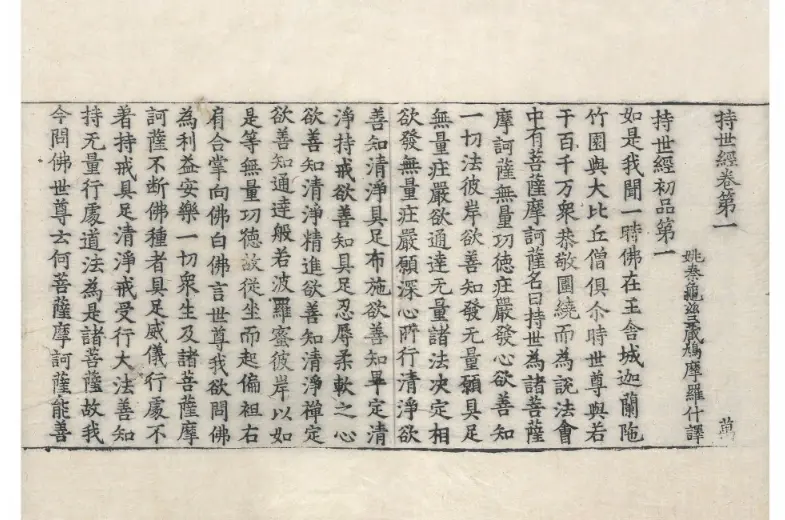 持世經卷第一
萬
姚秦龜茲三藏鳩摩羅什譯
持世經初品第一
如是我聞一時佛在王舍城迦蘭陁
竹園與大比丘僧俱尒時世尊與若
干百千万衆恭敬圍繞而為說法會
中有菩薩摩訶薩名曰持世為諸菩薩
摩訶薩無量功德莊嚴發心欲善知
一切法彼岸欲善知發无量願具足
無量莊嚴欲通達无量諸法決定相
欲發無量莊嚴願深心所行清淨欲
善知清淨具足布施欲善知畢定清
淨持戒欲善知具足忍辱柔軟之心
欲善知清淨精進欲善知清淨禪定
欲善知通達般若波羅蜜彼岸以如
是等無量功德故從坐而起偏袒右
肩合掌向佛白佛言世尊我欲問佛
為利益安樂一切衆生及諸菩薩摩
訶薩不断佛種者具足威儀行處不
着持戒具足清淨戒受行大法善知
持无量行處道法為是諸菩薩故我
今問佛世尊云何菩薩摩訶薩能善